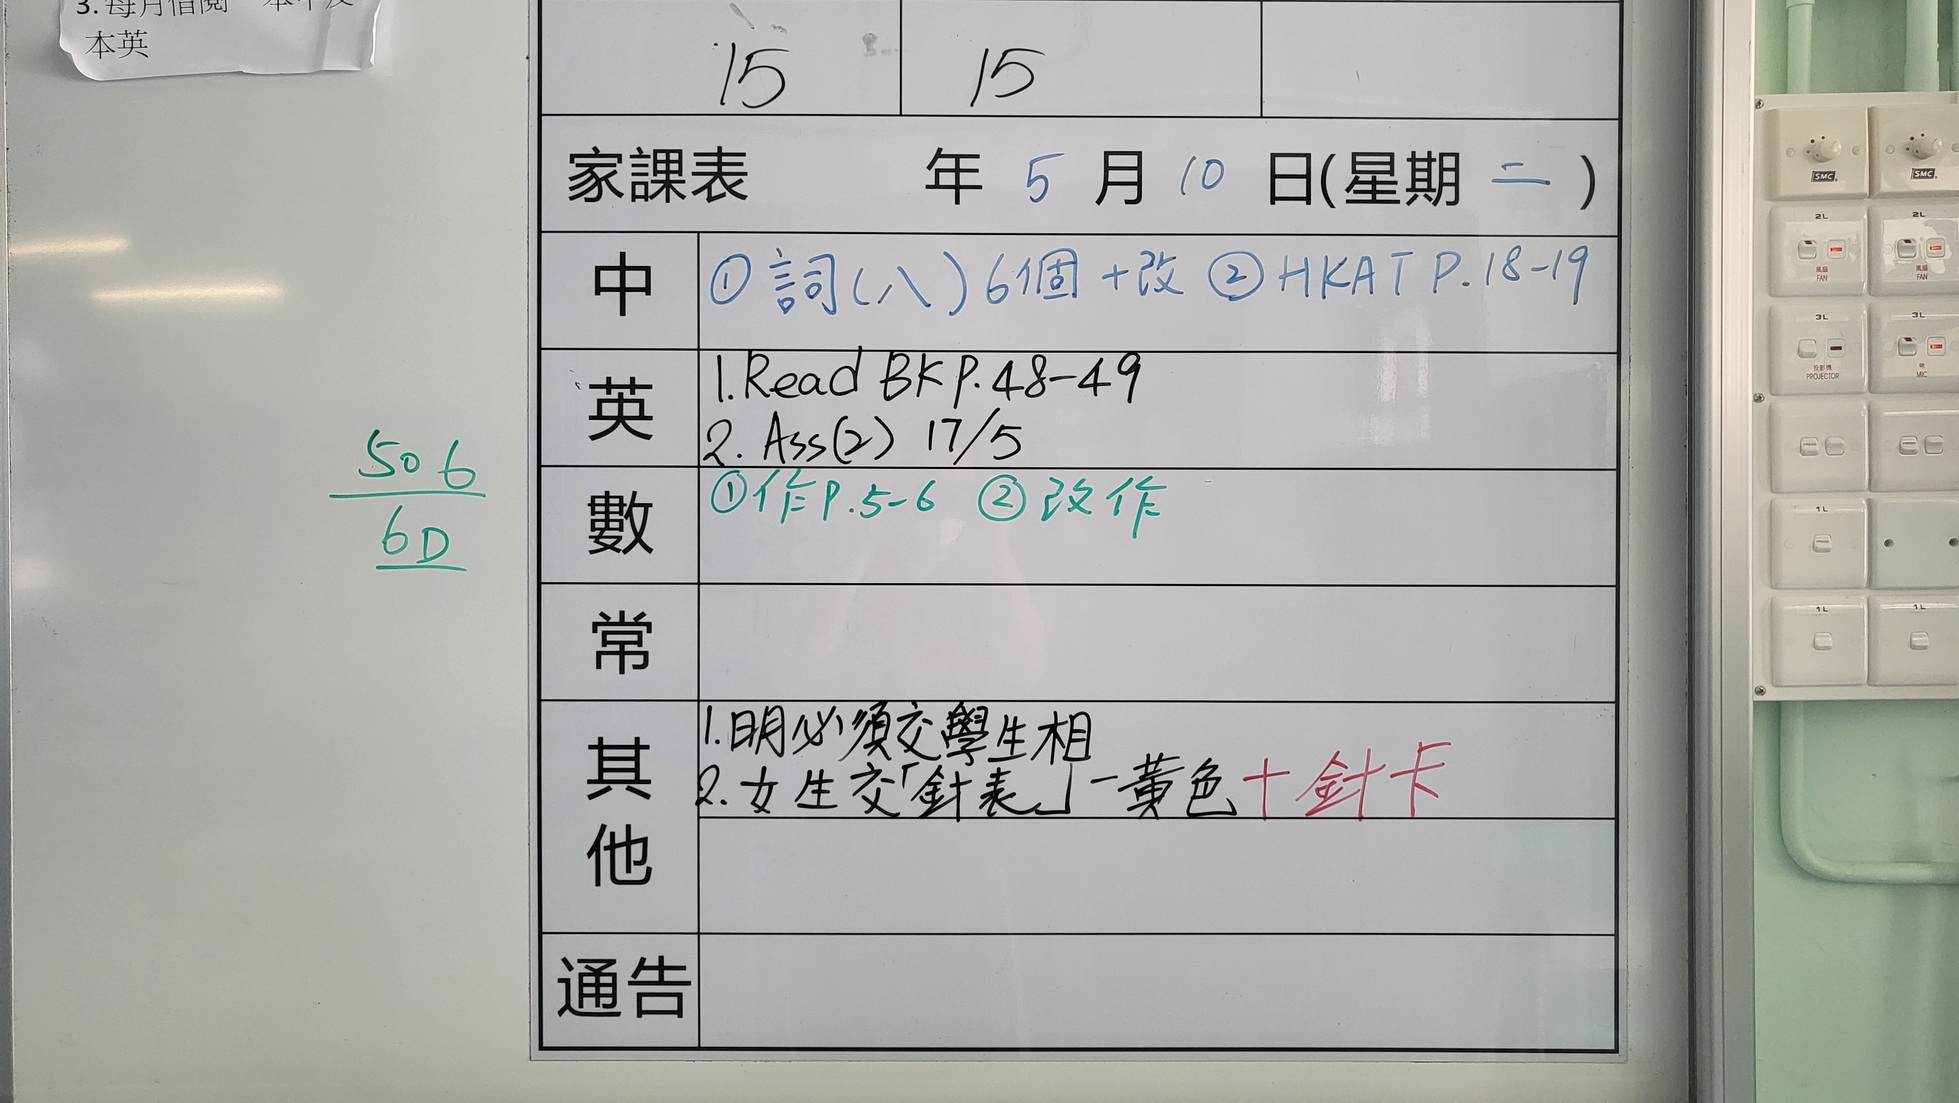 3. 每月借閱一本中及
本英
15 15
家課表 年 5 月 10 日(星期 二 )
中 ① 詞(八) 6個 + 改 ② HKAT P.18-19
英 1. Read BK P.48-49
2. Ass(2) 17/5
數 ①作P.5-6 ②改作
常
其他 1. 明必須交學生相
2. 女生交「針表」-黃色+針卡
通告
506
6D
SMC SMC
2L 2L
風扇 風扇
FAN FAN
3L 3L
投影機 咪
PROJECTOR MIC
1L 1L
1L 1L